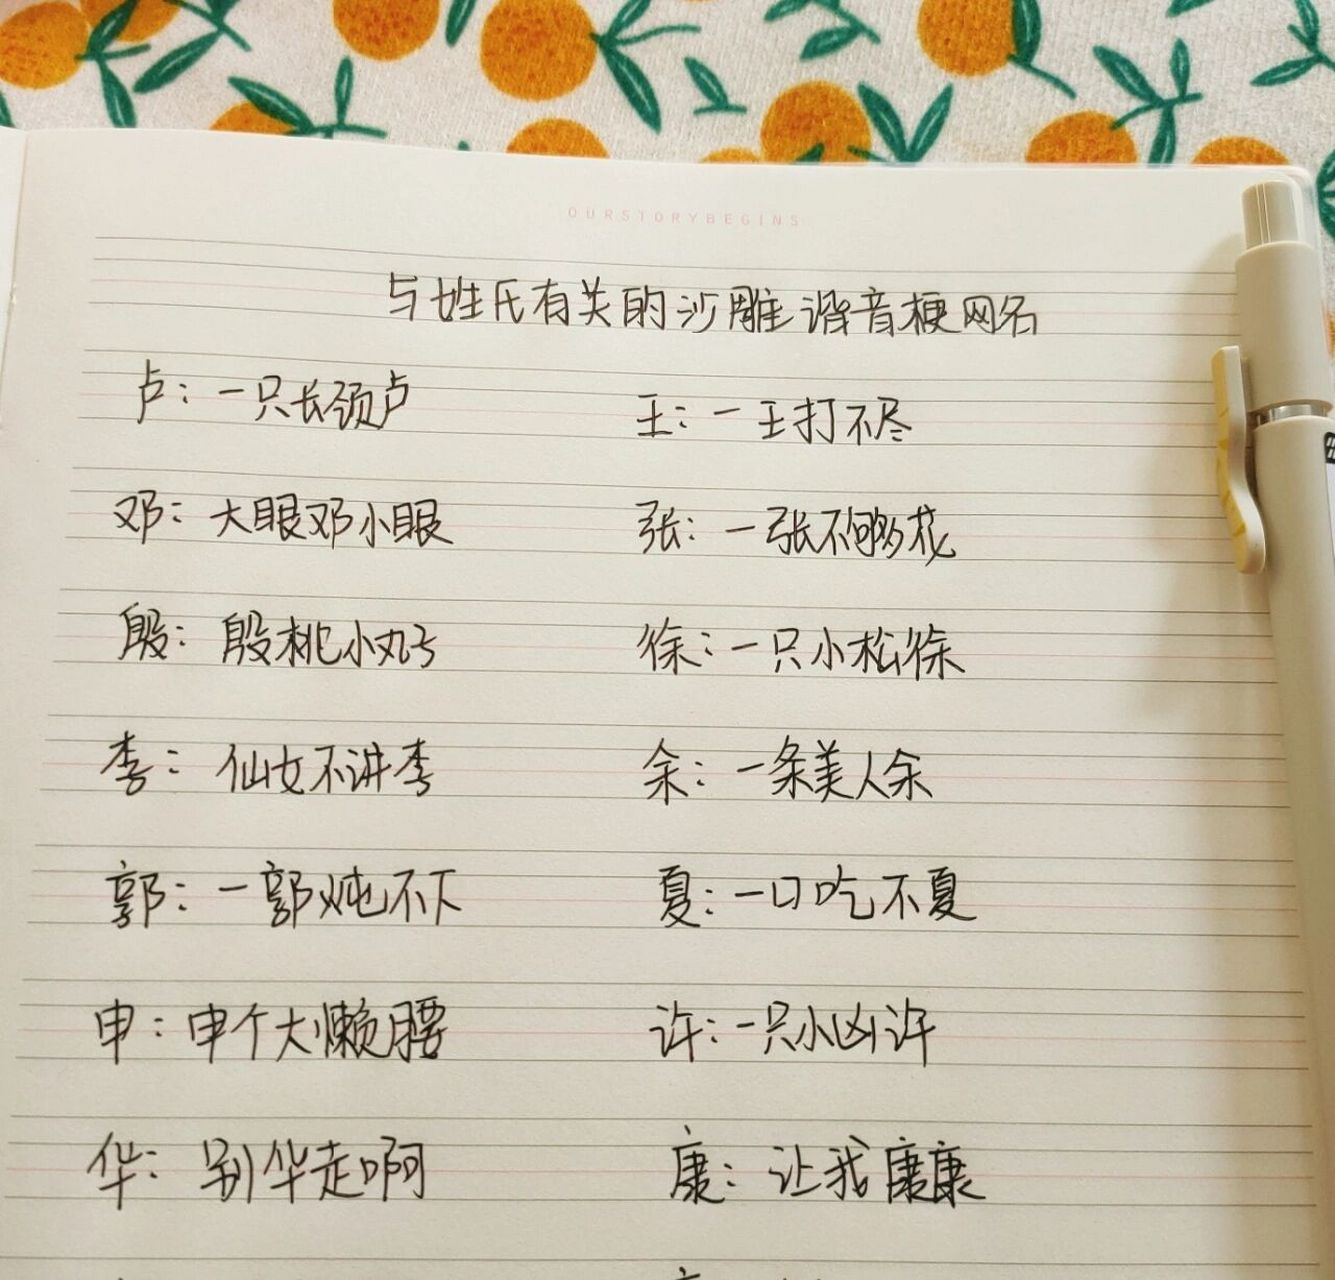 OURSTORYBEGINS
与姓氏有关的沙雕谐音梗网名
卢：一只长颈卢 王：一王打不尽
邓：大眼邓小眼 张：一张不够花
殷：殷桃小丸子 徐：一只小松徐
李：仙女不讲李 余：一条美人余
郭：一郭炖不下 夏：一口吃不夏
申：申个大懒腰 许：一只小凶许
华：别华走啊 康：让我康康